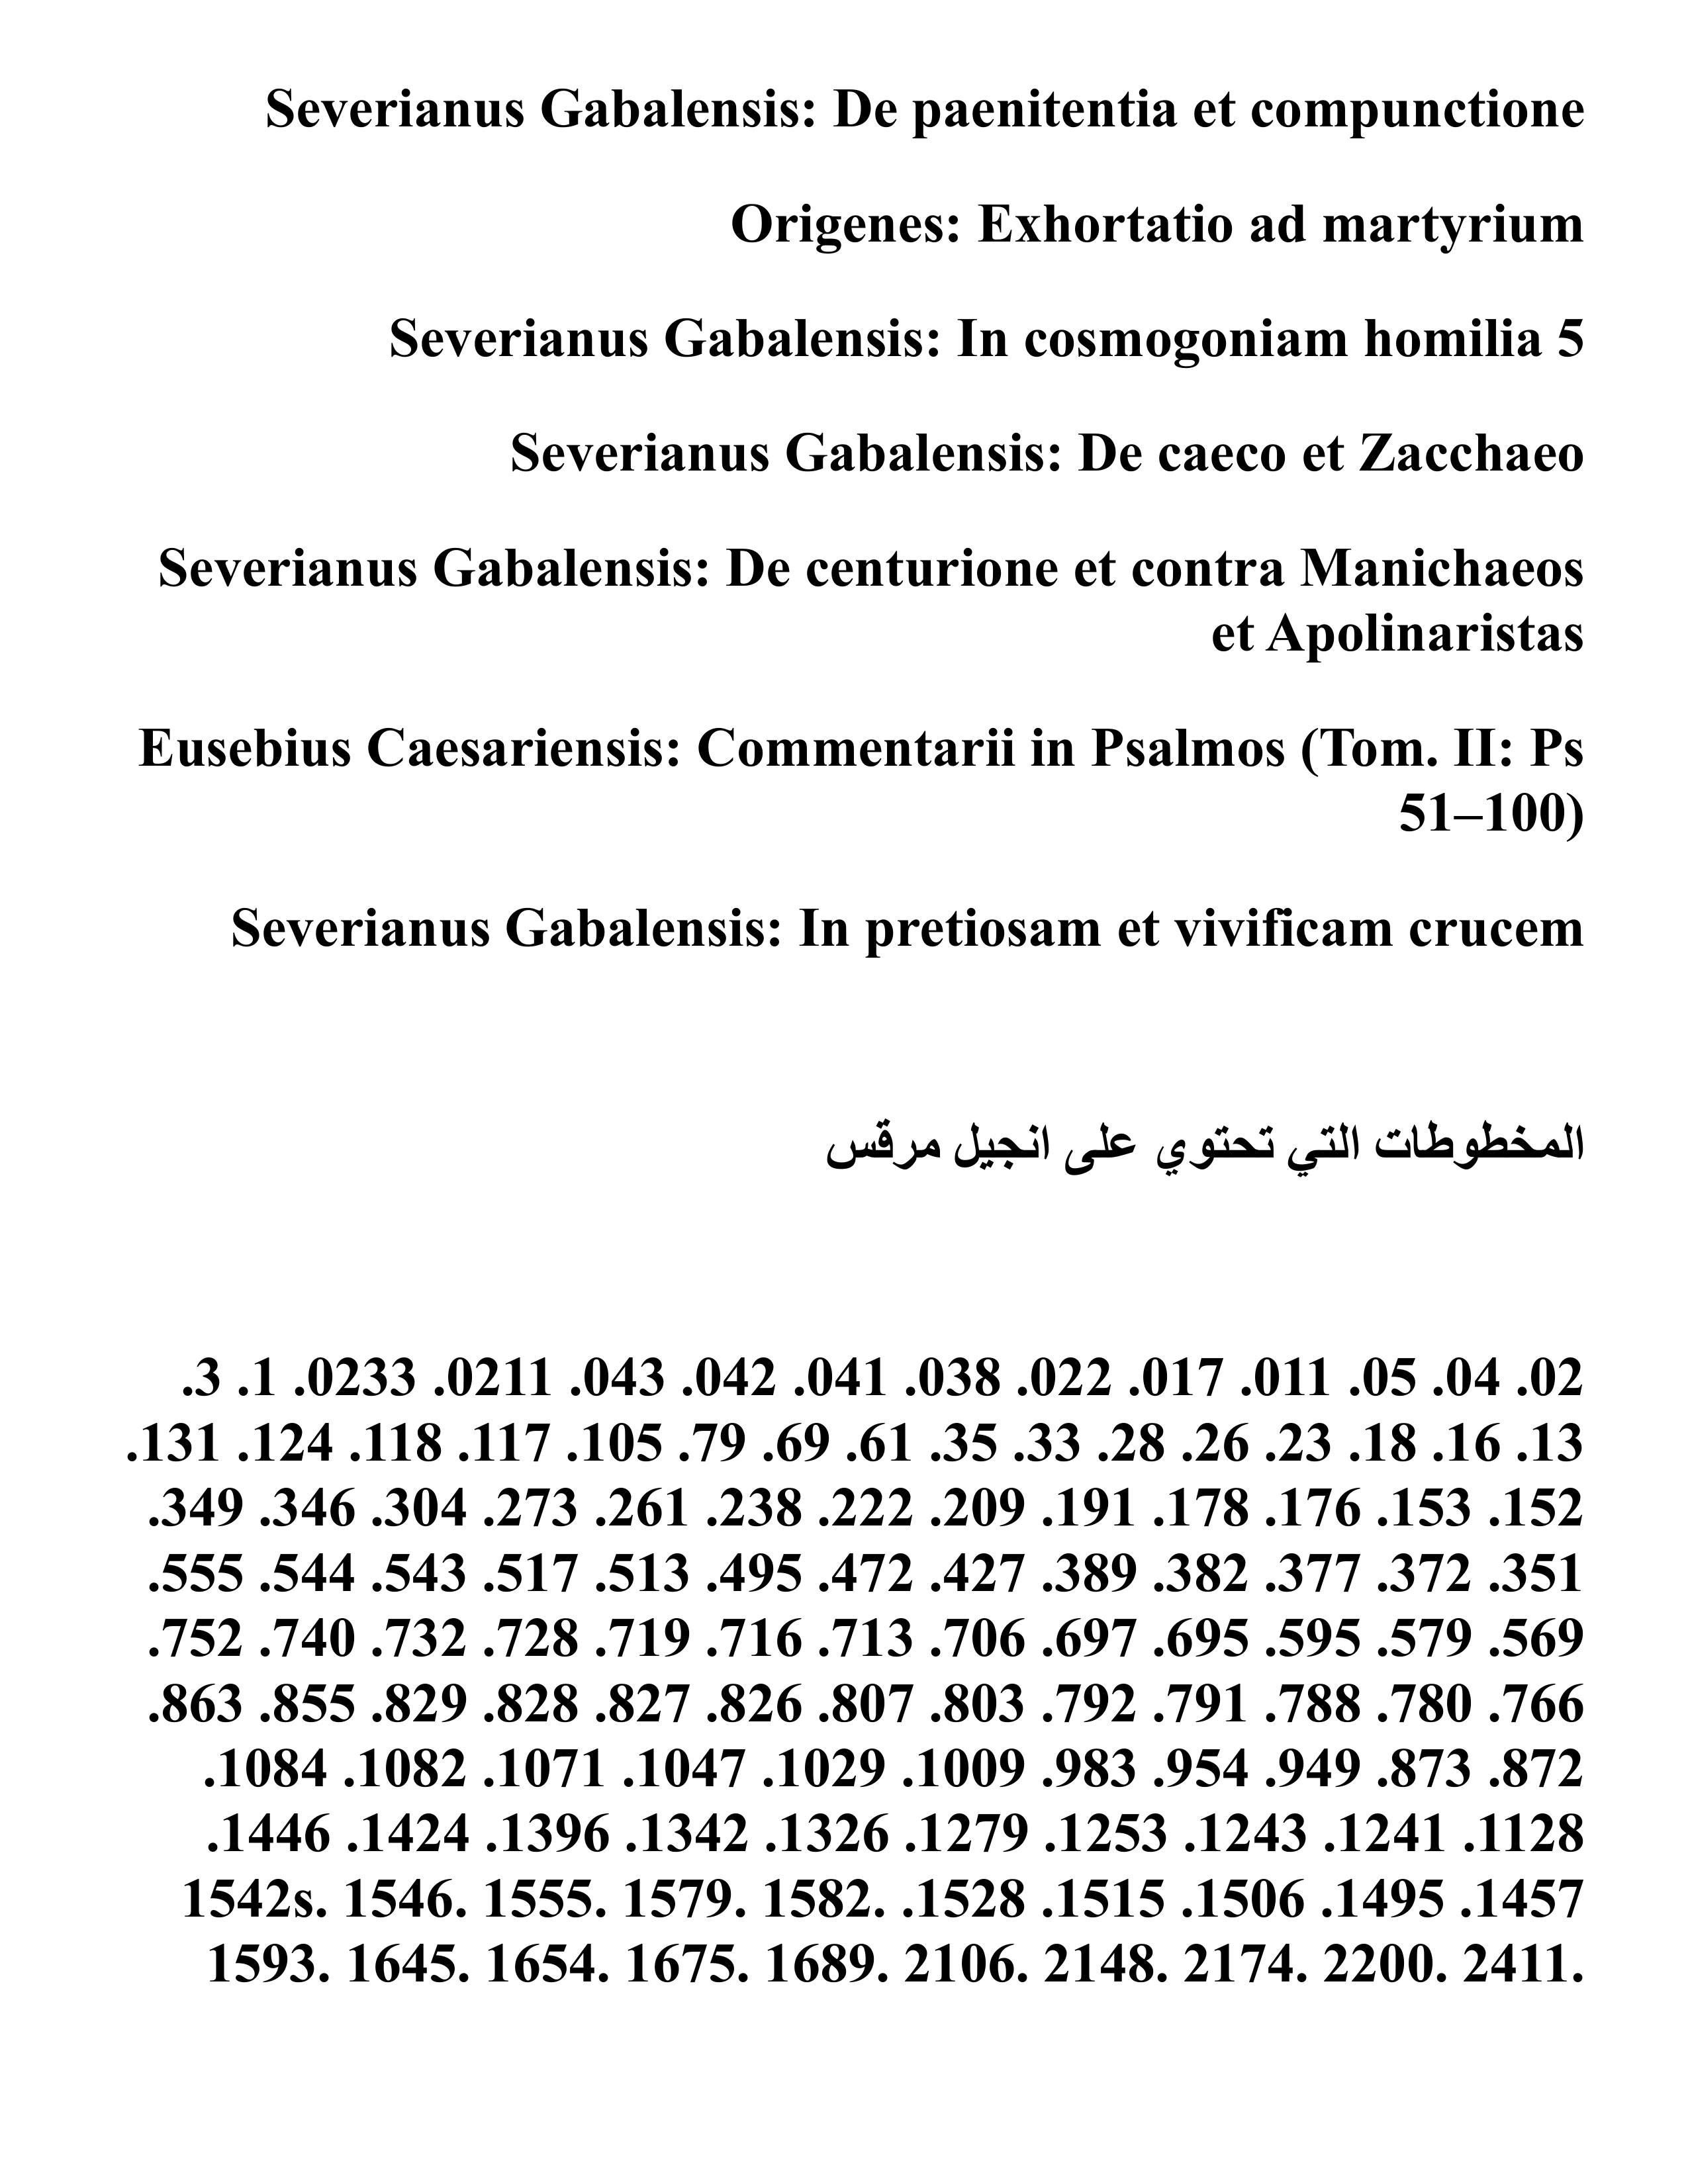 Severianus Gabalensis: De paenitentia et compunctione
Origenes: Exhortatio ad martyrium
Severianus Gabalensis: In cosmogoniam homilia 5
Severianus Gabalensis: De caeco et Zacchaeo
Severianus Gabalensis: De centurione et contra Manichaeos
et Apolinaristas
Eusebius Caesariensis: Commentarii in Psalmos (Tom. II: Ps
51–100)
Severianus Gabalensis: In pretiosam et vivificam crucem
المخطوطات التي تحتوي على انجيل مرقس
02. 04. 05. 011. 017. 022. 038. 041. 042. 043. 0211. 0233. 1. 3.
13. 16. 18. 23. 26. 28. 33. 35. 61. 69. 79. 105. 117. 118. 124. 131.
152. 153. 176. 178. 191. 209. 222. 238. 261. 273. 304. 346. 349.
351. 372. 377. 382. 389. 427. 472. 495. 513. 517. 543. 544. 555.
569. 579. 595. 695. 697. 706. 713. 716. 719. 728. 732. 740. 752.
766. 780. 788. 791. 792. 803. 807. 826. 827. 828. 829. 855. 863.
872. 873. 949. 954. 983. 1009. 1029. 1047. 1071. 1082. 1084.
1128. 1241. 1243. 1253. 1279. 1326. 1342. 1396. 1424. 1446.
1457. 1495. 1506. 1515. 1528. 1542s. 1546. 1555. 1579. 1582.
1593. 1645. 1654. 1675. 1689. 2106. 2148. 2174. 2200. 2411.